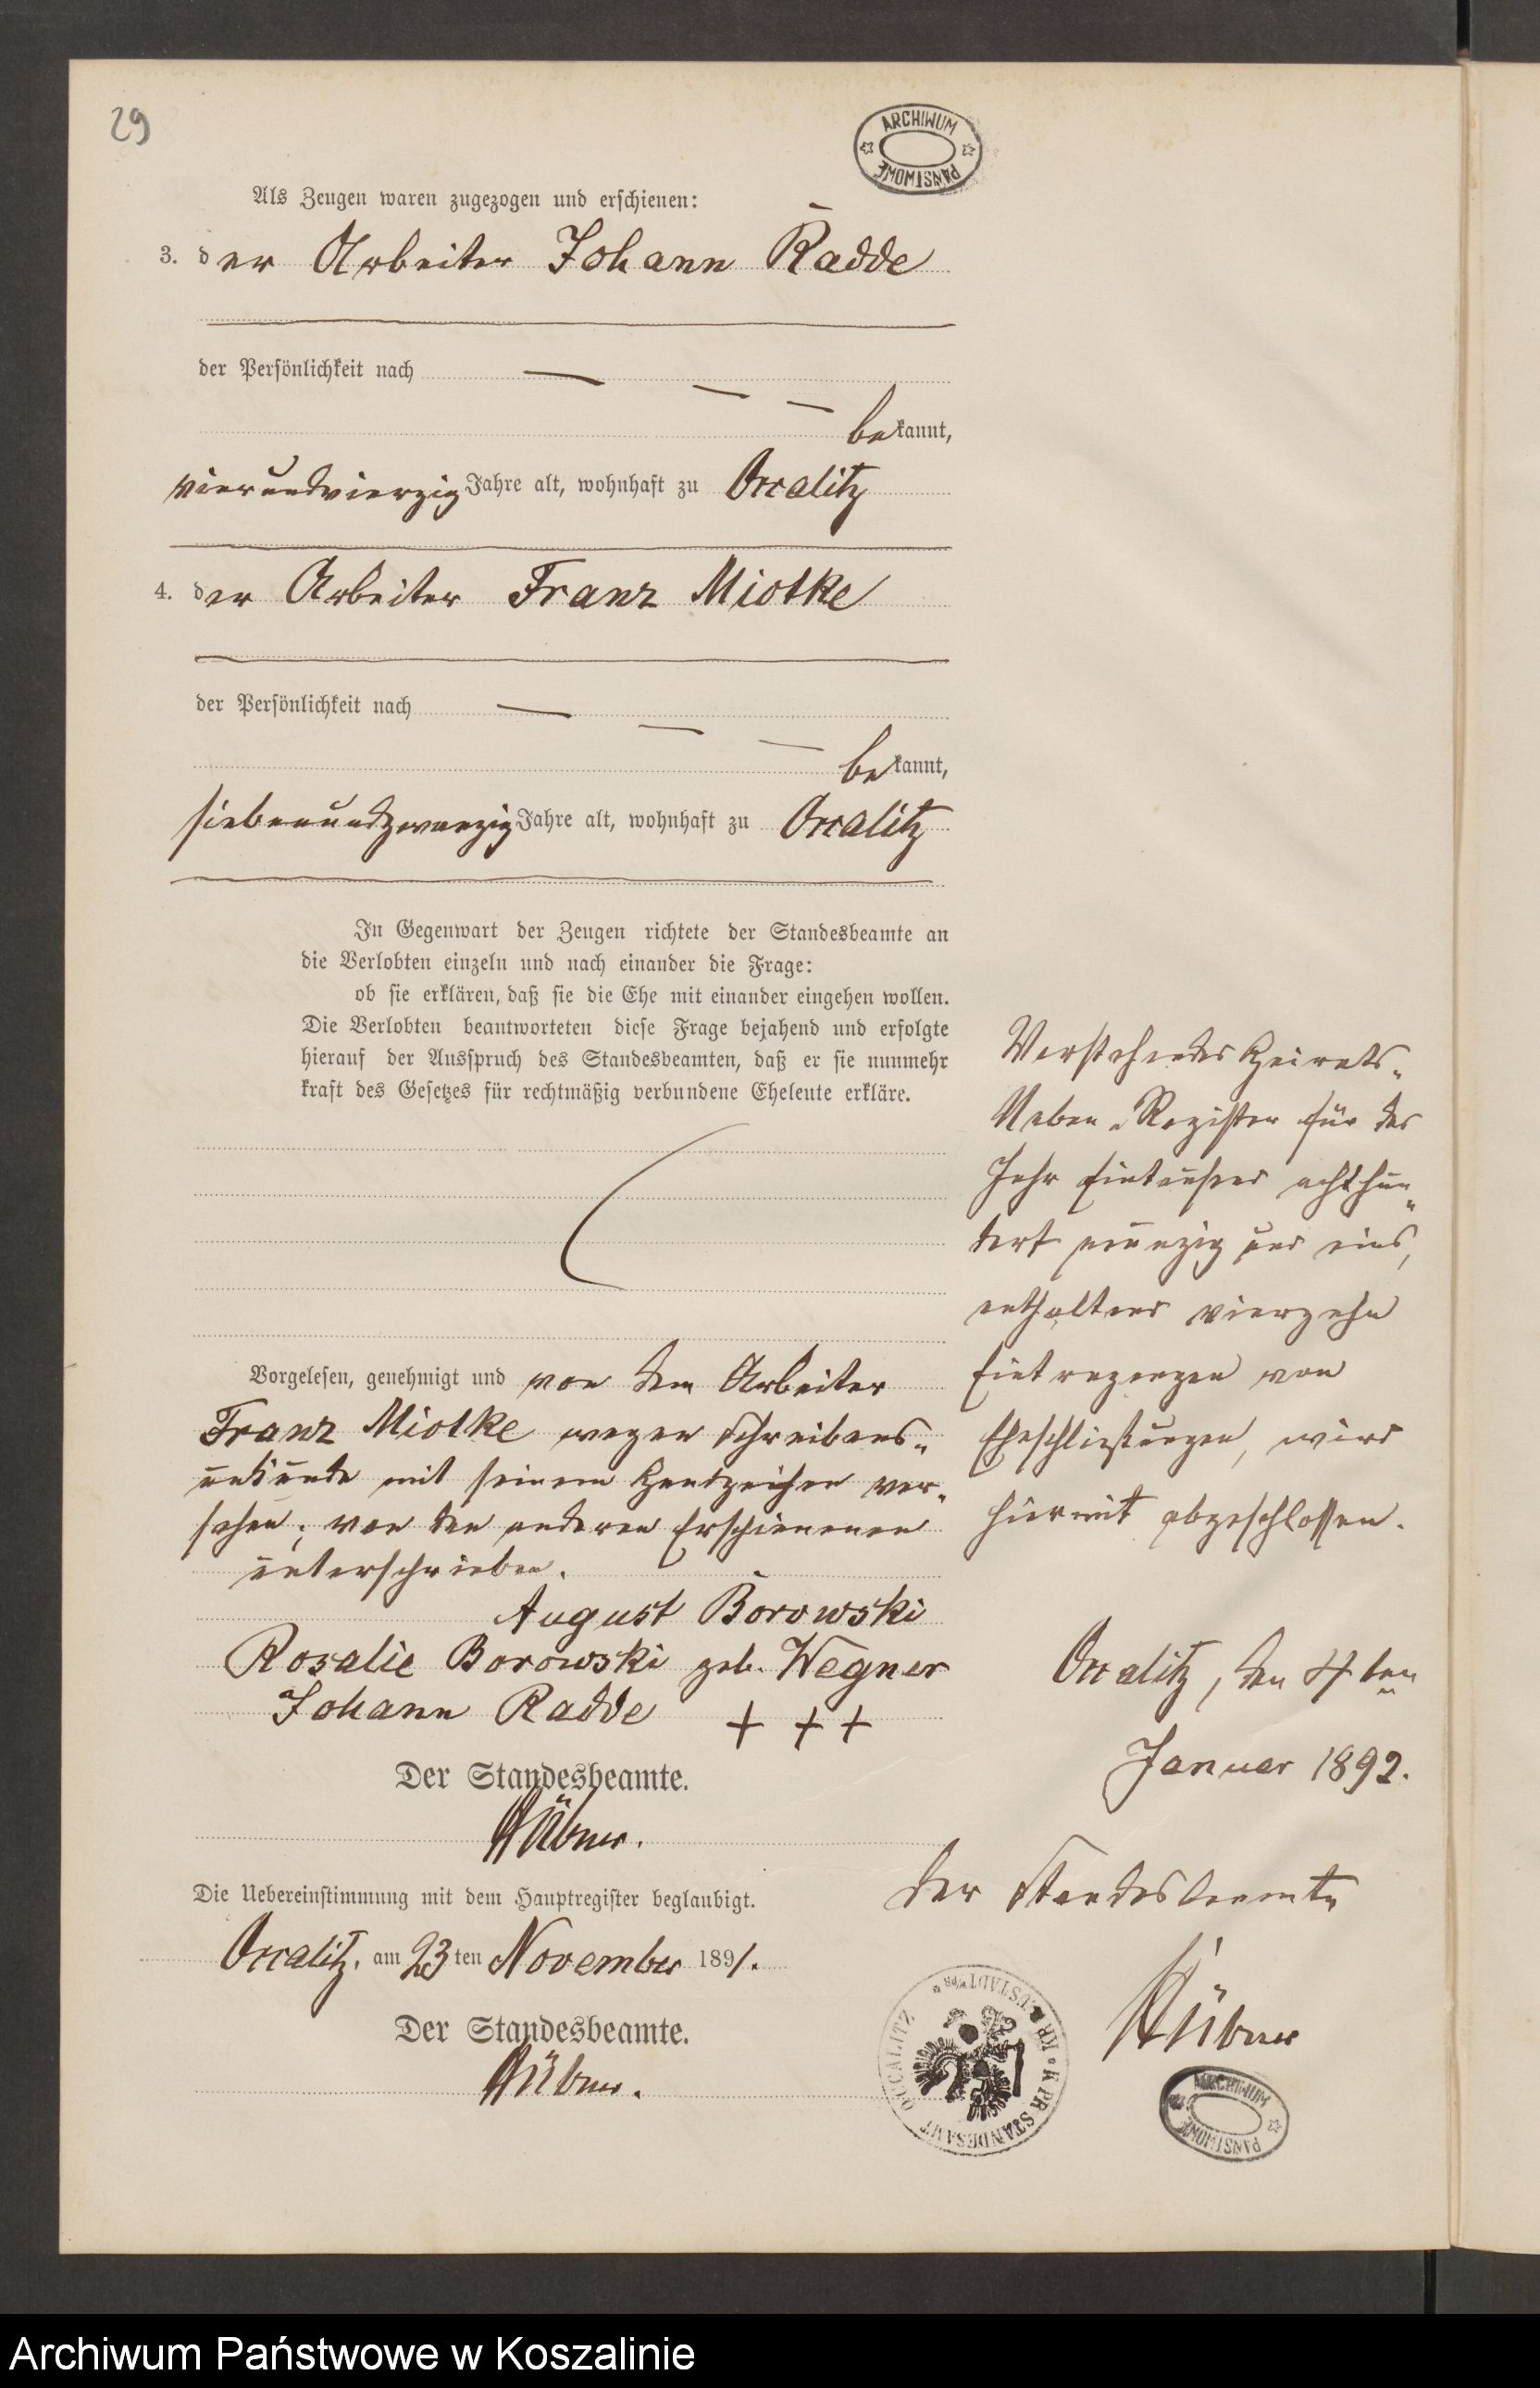 29
ARCHIWUM PAŃSTWOWE
Als Zeugen waren zugezogen und erschienen:
3. der Arbeiter Johann Radde
der Persönlichkeit nach — — —
bekannt,
vierundvierzig Jahre alt, wohnhaft zu Occalitz
4. der Arbeiter Franz Miotke
der Persönlichkeit nach — — —
bekannt,
siebenundzwanzig Jahre alt, wohnhaft zu Occalitz
In Gegenwart der Zeugen richtete der Standesbeamte an
die Verlobten einzeln und nach einander die Frage:
ob sie erklären, daß sie die Ehe mit einander eingehen wollen.
Die Verlobten beantworteten diese Frage bejahend und erfolgte
hierauf der Ausspruch des Standesbeamten, daß er sie nunmehr
kraft des Gesetzes für rechtmäßig verbundene Eheleute erkläre.
Vorgelesen, genehmigt und von dem Arbeiter
Franz Miotke wegen Schreibens-
unkunde mit seinem Handzeichen ver-
sehen; von den anderen Erschienenen
unterschrieben.
August Borowski
Rosalie Borowski geb. Wegner
Johann Radde + + +
Der Standesbeamte.
Hübner.
Die Uebereinstimmung mit dem Hauptregister beglaubigt.
Occalitz, am 23ten November 1891.
Der Standesbeamte.
Hübner.
Vorstehendes Heirats-
Neben-Register für das
Jahr Eintausend achthun-
dert neunzig und eins,
enthaltend vierzehn
Eintragungen von
Eheschließungen, wird
hiermit abgeschlossen.
Occalitz, den 4ten
Januar 1892.
Der Standesbeamte
Hübner
K. PR. STANDESAMT OCCALITZ
ARCHIWUM PAŃSTWOWE
Archiwum Państwowe w Koszalinie